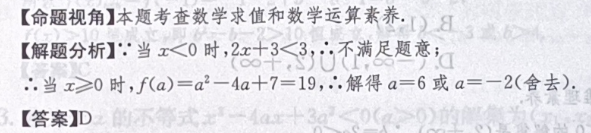 【命题视角】本题考查数学求值和数学运算素养.
【解题分析】∵当 x<0 时,2x+3<3,∴不满足题意;
∴当 x≥0 时,f(a)=a²-4a+7=19,∴解得 a=6 或 a=-2(舍去).
【答案】D